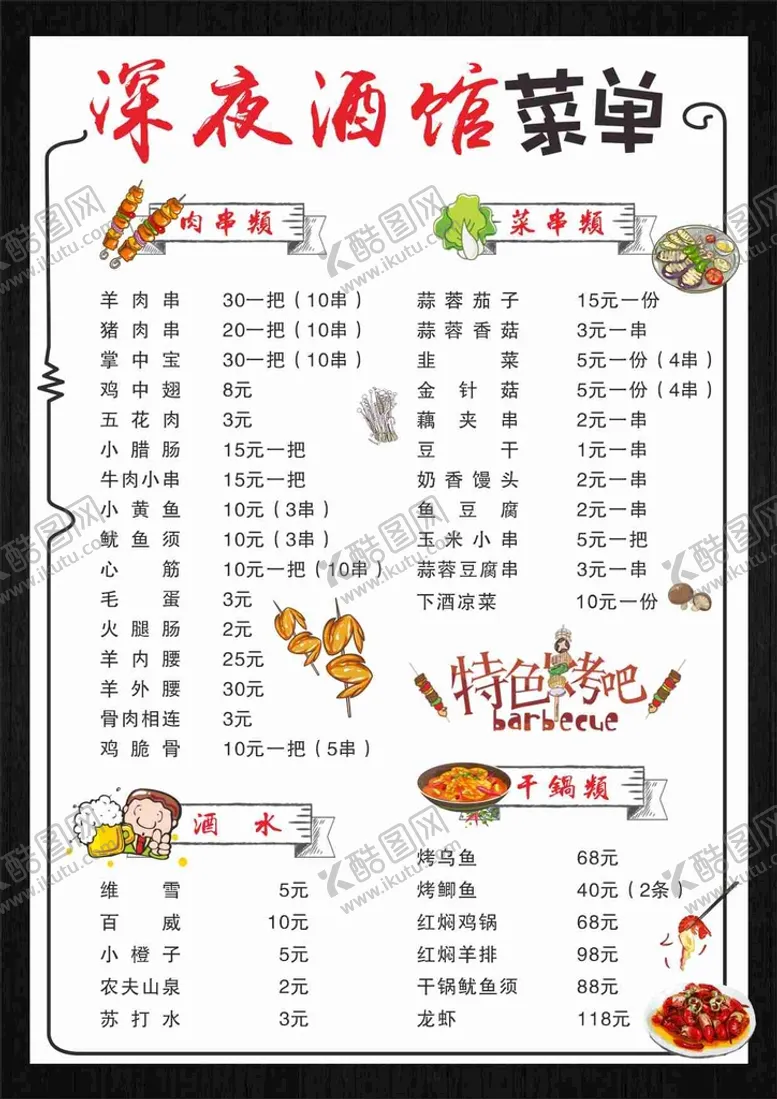 深夜酒馆菜单
肉串類
羊肉串 30一把(10串)
猪肉串 20一把(10串)
掌中宝 30一把(10串)
鸡中翅 8元
五花肉 3元
小腊肠 15元一把
牛肉小串 15元一把
小黄鱼 10元(3串)
鱿鱼须 10元(3串)
心筋 10元一把(10串)
毛蛋 3元
火腿肠 2元
羊内腰 25元
羊外腰 30元
骨肉相连 3元
鸡脆骨 10元一把(5串)
酒水
维雪 5元
百威 10元
小橙子 5元
农夫山泉 2元
苏打水 3元
菜串類
蒜蓉茄子 15元一份
蒜蓉香菇 3元一串
韭菜 5元一份(4串)
金针菇 5元一份(4串)
藕夹串 2元一串
豆干 1元一串
奶香馒头 2元一串
鱼豆腐 2元一串
玉米小串 5元一把
蒜蓉豆腐串 3元一串
下酒凉菜 10元一份
特色烤吧
barbecue
干鍋類
烤乌鱼 68元
烤鲫鱼 40元(2条)
红焖鸡锅 68元
红焖羊排 98元
干锅鱿鱼须 88元
龙虾 118元
酷图网
www.ikutu.com